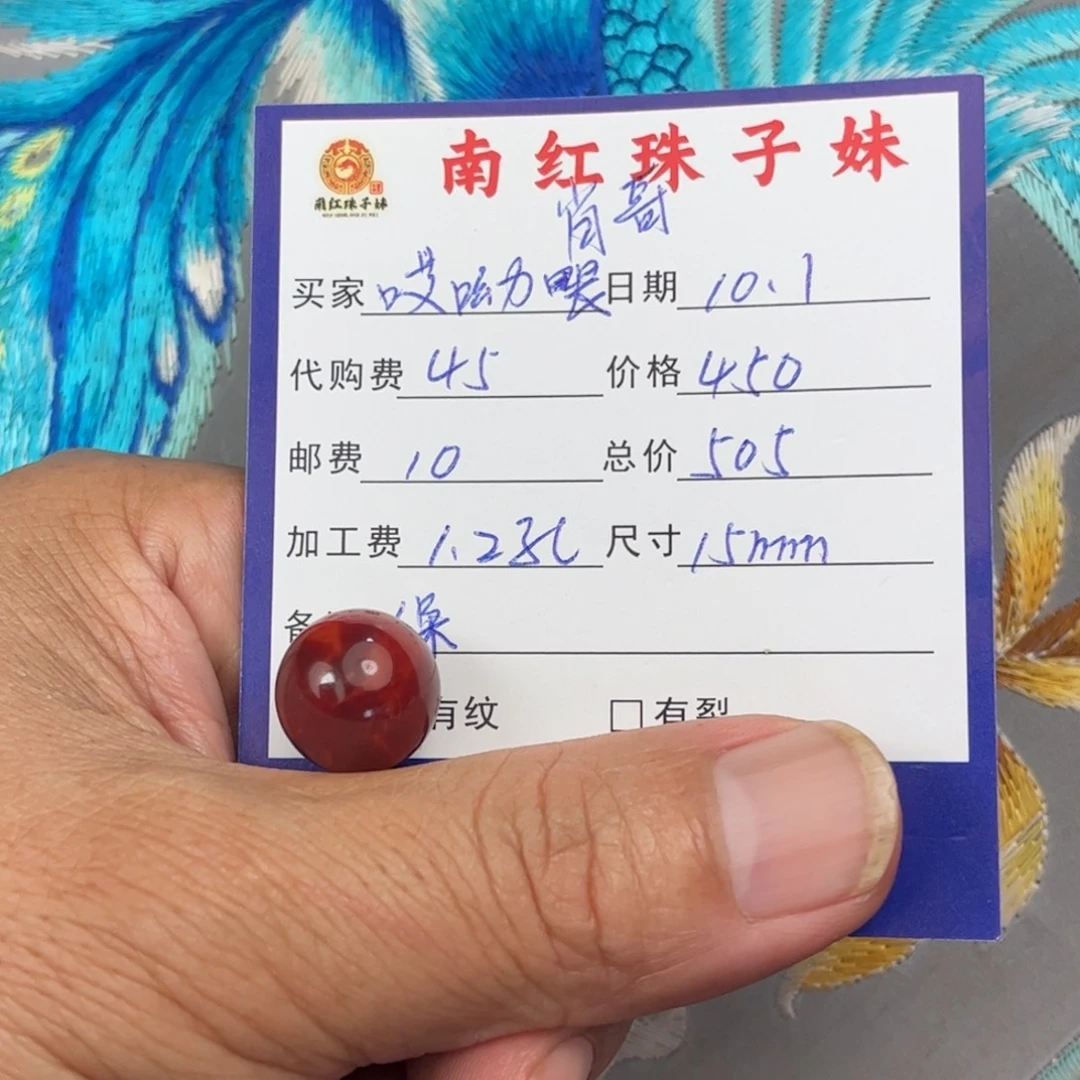 南红珠子妹
南红珠子妹
肖哥
买家 哎呦力 日期 10.1
代购费 45 价格 450
邮费 10 总价 505
加工费 1.2孔 尺寸 15mm
备 保
有纹 □有裂